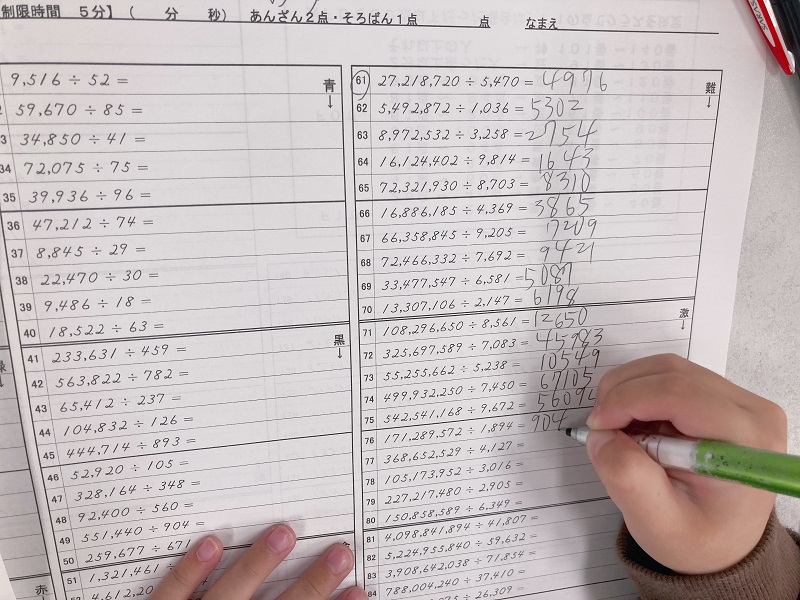 制限時間 5分】( 分 秒) あんざん2点・そろばん1点 点 なまえ
青
↓
9,516 ÷ 52 =
59,670 ÷ 85 =
34,850 ÷ 41 =
34 72,075 ÷ 75 =
35 39,936 ÷ 96 =
36 47,212 ÷ 74 =
37 8,845 ÷ 29 =
38 22,470 ÷ 30 =
39 9,486 ÷ 18 =
40 18,522 ÷ 63 =
黒
↓
41 233,631 ÷ 459 =
42 563,822 ÷ 782 =
43 65,412 ÷ 237 =
44 104,832 ÷ 126 =
45 444,714 ÷ 893 =
46 52,920 ÷ 105 =
47 328,164 ÷ 348 =
48 92,400 ÷ 560 =
49 551,440 ÷ 904 =
50 259,677 ÷ 671
51 1,321,461 ÷
4,612,20
赤
難
↓
61 27,218,720 ÷ 5,470 = 4976
62 5,492,872 ÷ 1,036 = 5302
63 8,972,532 ÷ 3,258 = 2754
64 16,124,402 ÷ 9,814 = 1643
65 72,321,930 ÷ 8,703 = 8310
66 16,886,185 ÷ 4,369 = 3865
67 66,358,845 ÷ 9,205 = 7209
68 72,466,332 ÷ 7,692 = 9421
69 33,477,547 ÷ 6,581 = 5087
70 13,307,106 ÷ 2,147 = 6198
激
↓
71 108,296,650 ÷ 8,561 = 12650
72 325,697,589 ÷ 7,083 = 45983
73 55,255,662 ÷ 5,238 = 10549
74 499,932,250 ÷ 7,450 = 67105
75 542,541,168 ÷ 9,672 = 56094
76 171,289,572 ÷ 1,894 = 904
77 368,652,529 ÷ 4,127 =
78 105,173,952 ÷ 3,016 =
79 227,217,480 ÷ 2,905 =
80 150,858,589 ÷ 6,349 =
81 4,098,841,894 ÷ 41,807 =
82 5,224,955,840 ÷ 59,632 =
83 3,908,642,038 ÷ 71,854 =
84 788,004,240 ÷ 37,410 =
÷ 26,309 =